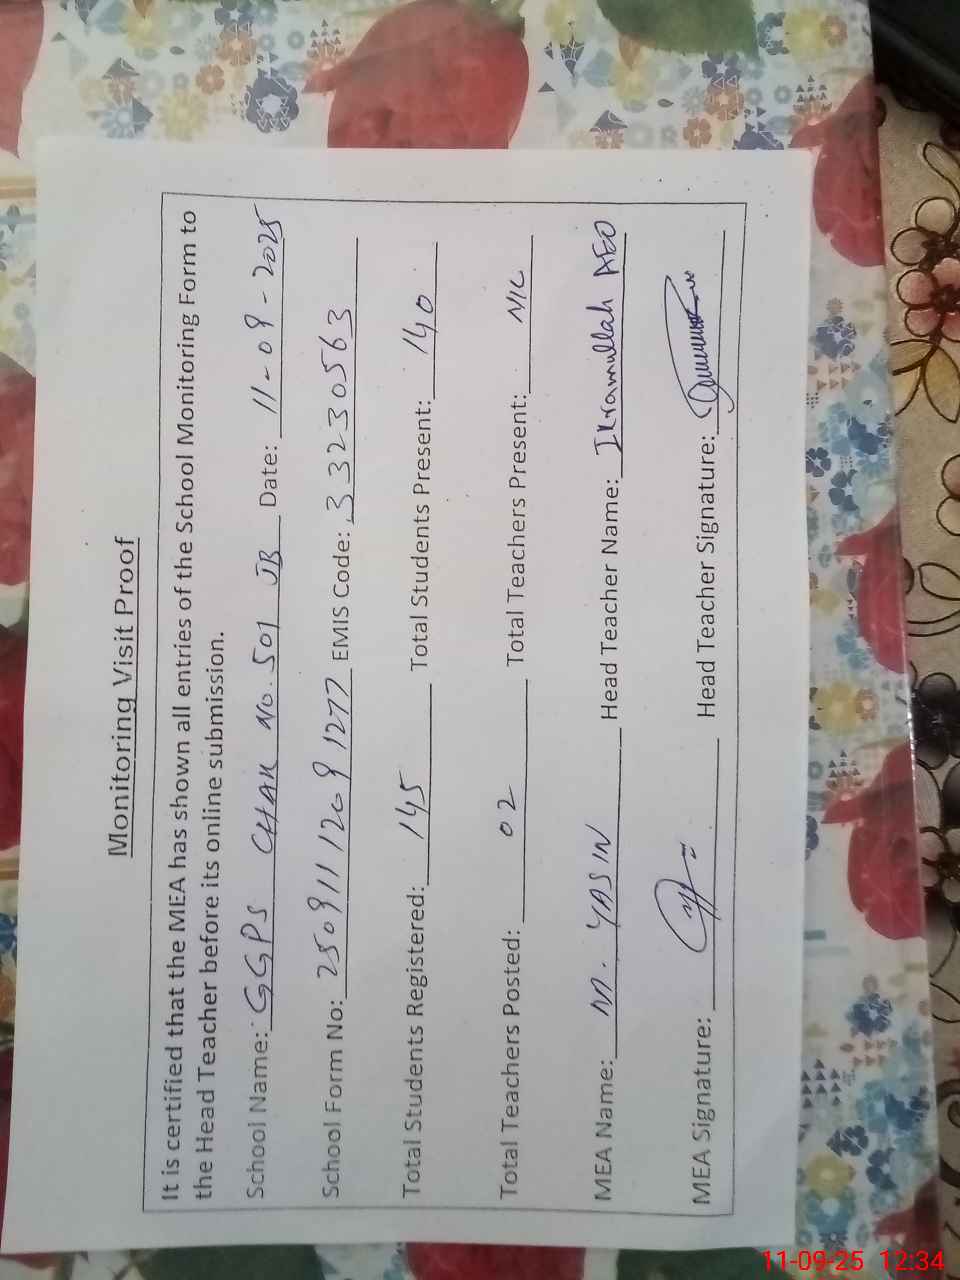 Monitoring Visit Proof
It is certified that the MEA has shown all entries of the School Monitoring Form to
the Head Teacher before its online submission.
School Name: GGPS CHAK No. 501 JB Date: 11-09-2025
School Form No: 25091112091277 EMIS Code: 33230563
Total Students Registered: 145 Total Students Present: 140
Total Teachers Posted: 02 Total Teachers Present: NIL
MEA Name: M. YASIN Head Teacher Name: Ikramullah AEO
MEA Signature: Head Teacher Signature:
11-09-25 12:34